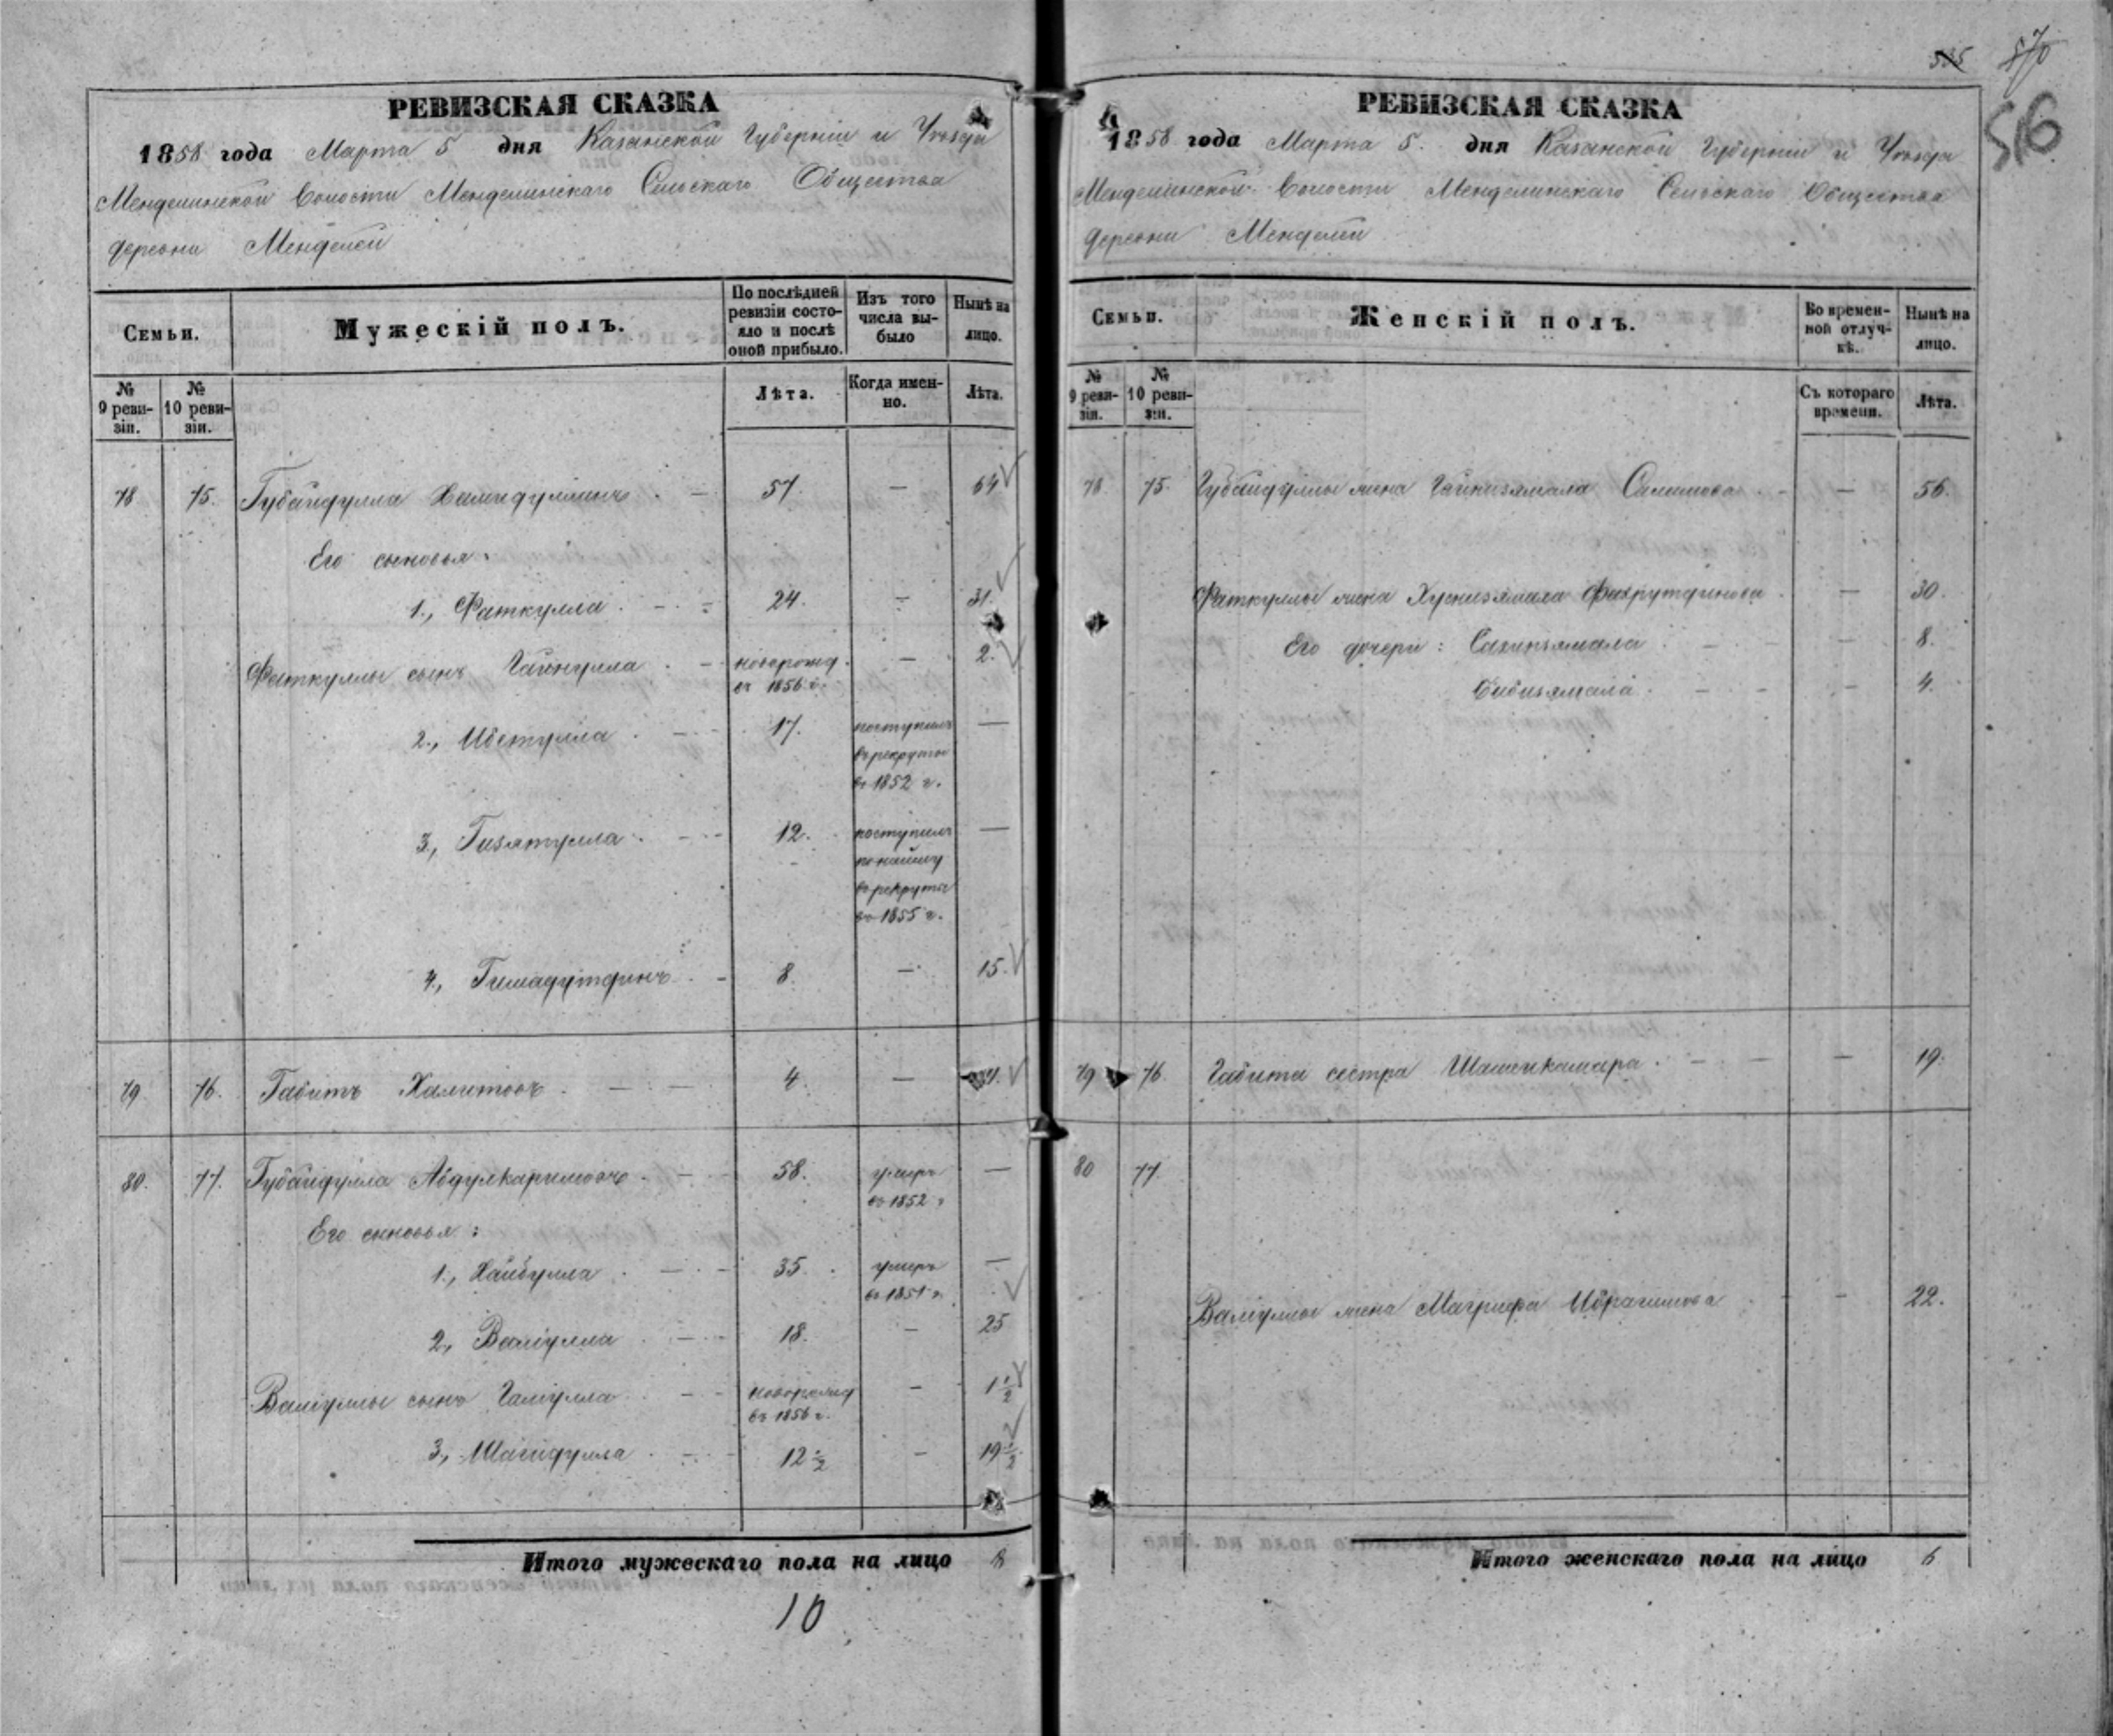 535 870
516
РЕВИЗСКАЯ СКАЗКА
1858 года Марта 5 дня Казанской Губерніи и Уѣзда
Менделинской Волости Менделинскаго Сельскаго Общества
деревни Менделей
Семьи.
Мужескій полъ.
По послѣдней ревизіи состояло и послѣ оной прибыло.
Изъ того числа выбыло
Нынѣ на лицо.
№ 9 ревизіи.
№ 10 ревизіи.
Лѣта.
Когда именно.
Лѣта.
78 75. Губайдулла Хамидуллинъ . — 57. — 64
Его сыновья:
1., Фаткулла . — 24. — 31.
Фаткуллы сынъ Гайнулла . — новорожд. — 2.
въ 1856 г.
2., Ибетулла . — 17. поступилъ —
въ рекруты
въ 1852 г.
3., Гизятулла . — 12. поступилъ —
по найму
въ рекруты
въ 1855 г.
4., Гимадутдинъ . — 8. — 15.
79 76. Габитъ Хамитовъ . — — 4. — 11.
80. 77. Губайдулла Абдулкаримовъ . — 58. умеръ —
въ 1852 г
Его сыновья:
1., Хайбулла . — 35. умеръ —
въ 1851 г.
2., Валіулла . — 18. — 25
Валіуллы сынъ Галіулла . — новорожд — 1 1/2
въ 1856 г.
3., Шагидулла . — 12 1/2 — 19 1/2
Итого мужескаго пола на лицо 8
10
РЕВИЗСКАЯ СКАЗКА
1858 года Марта 5. дня Казанской Губерніи и Уѣзда
Менделинской Волости Менделинскаго Сельскаго Общества
деревни Менделей
Семьи.
Женскій полъ.
Во временной отлучкѣ.
Нынѣ на лицо.
№ 9 ревизіи.
№ 10 ревизіи.
Съ котораго времени.
Лѣта.
78. 75. Губайдуллы жена Гайнизямала Салимова . — — 56.
Фаткуллы жена Хуснизямала Фахрутдинова . — 30.
Его дочери: Сахипзямала . — — 8.
Бибизямала . — — 4.
79 76. Габита сестра Шамсикамара . — — 19.
80 77.
Валіуллы жена Магрифа Ибрагимова — — 22.
Итого женскаго пола на лицо 6